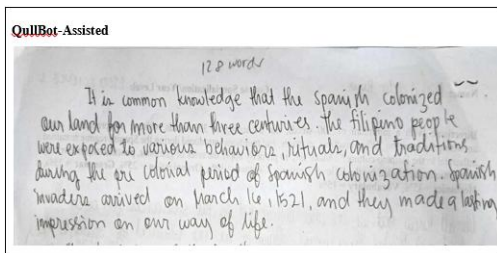 QullBot-Assisted
128 words
It is common knowledge that the Spanish colonized
our land for more than three centuries. The filipino people
were exposed to various behaviors, rituals, and traditions
during the pre colonial period of Spanish colonization. Spanish
invaders arrived on March 16, 1521, and they made a lasting
impression on our way of life.